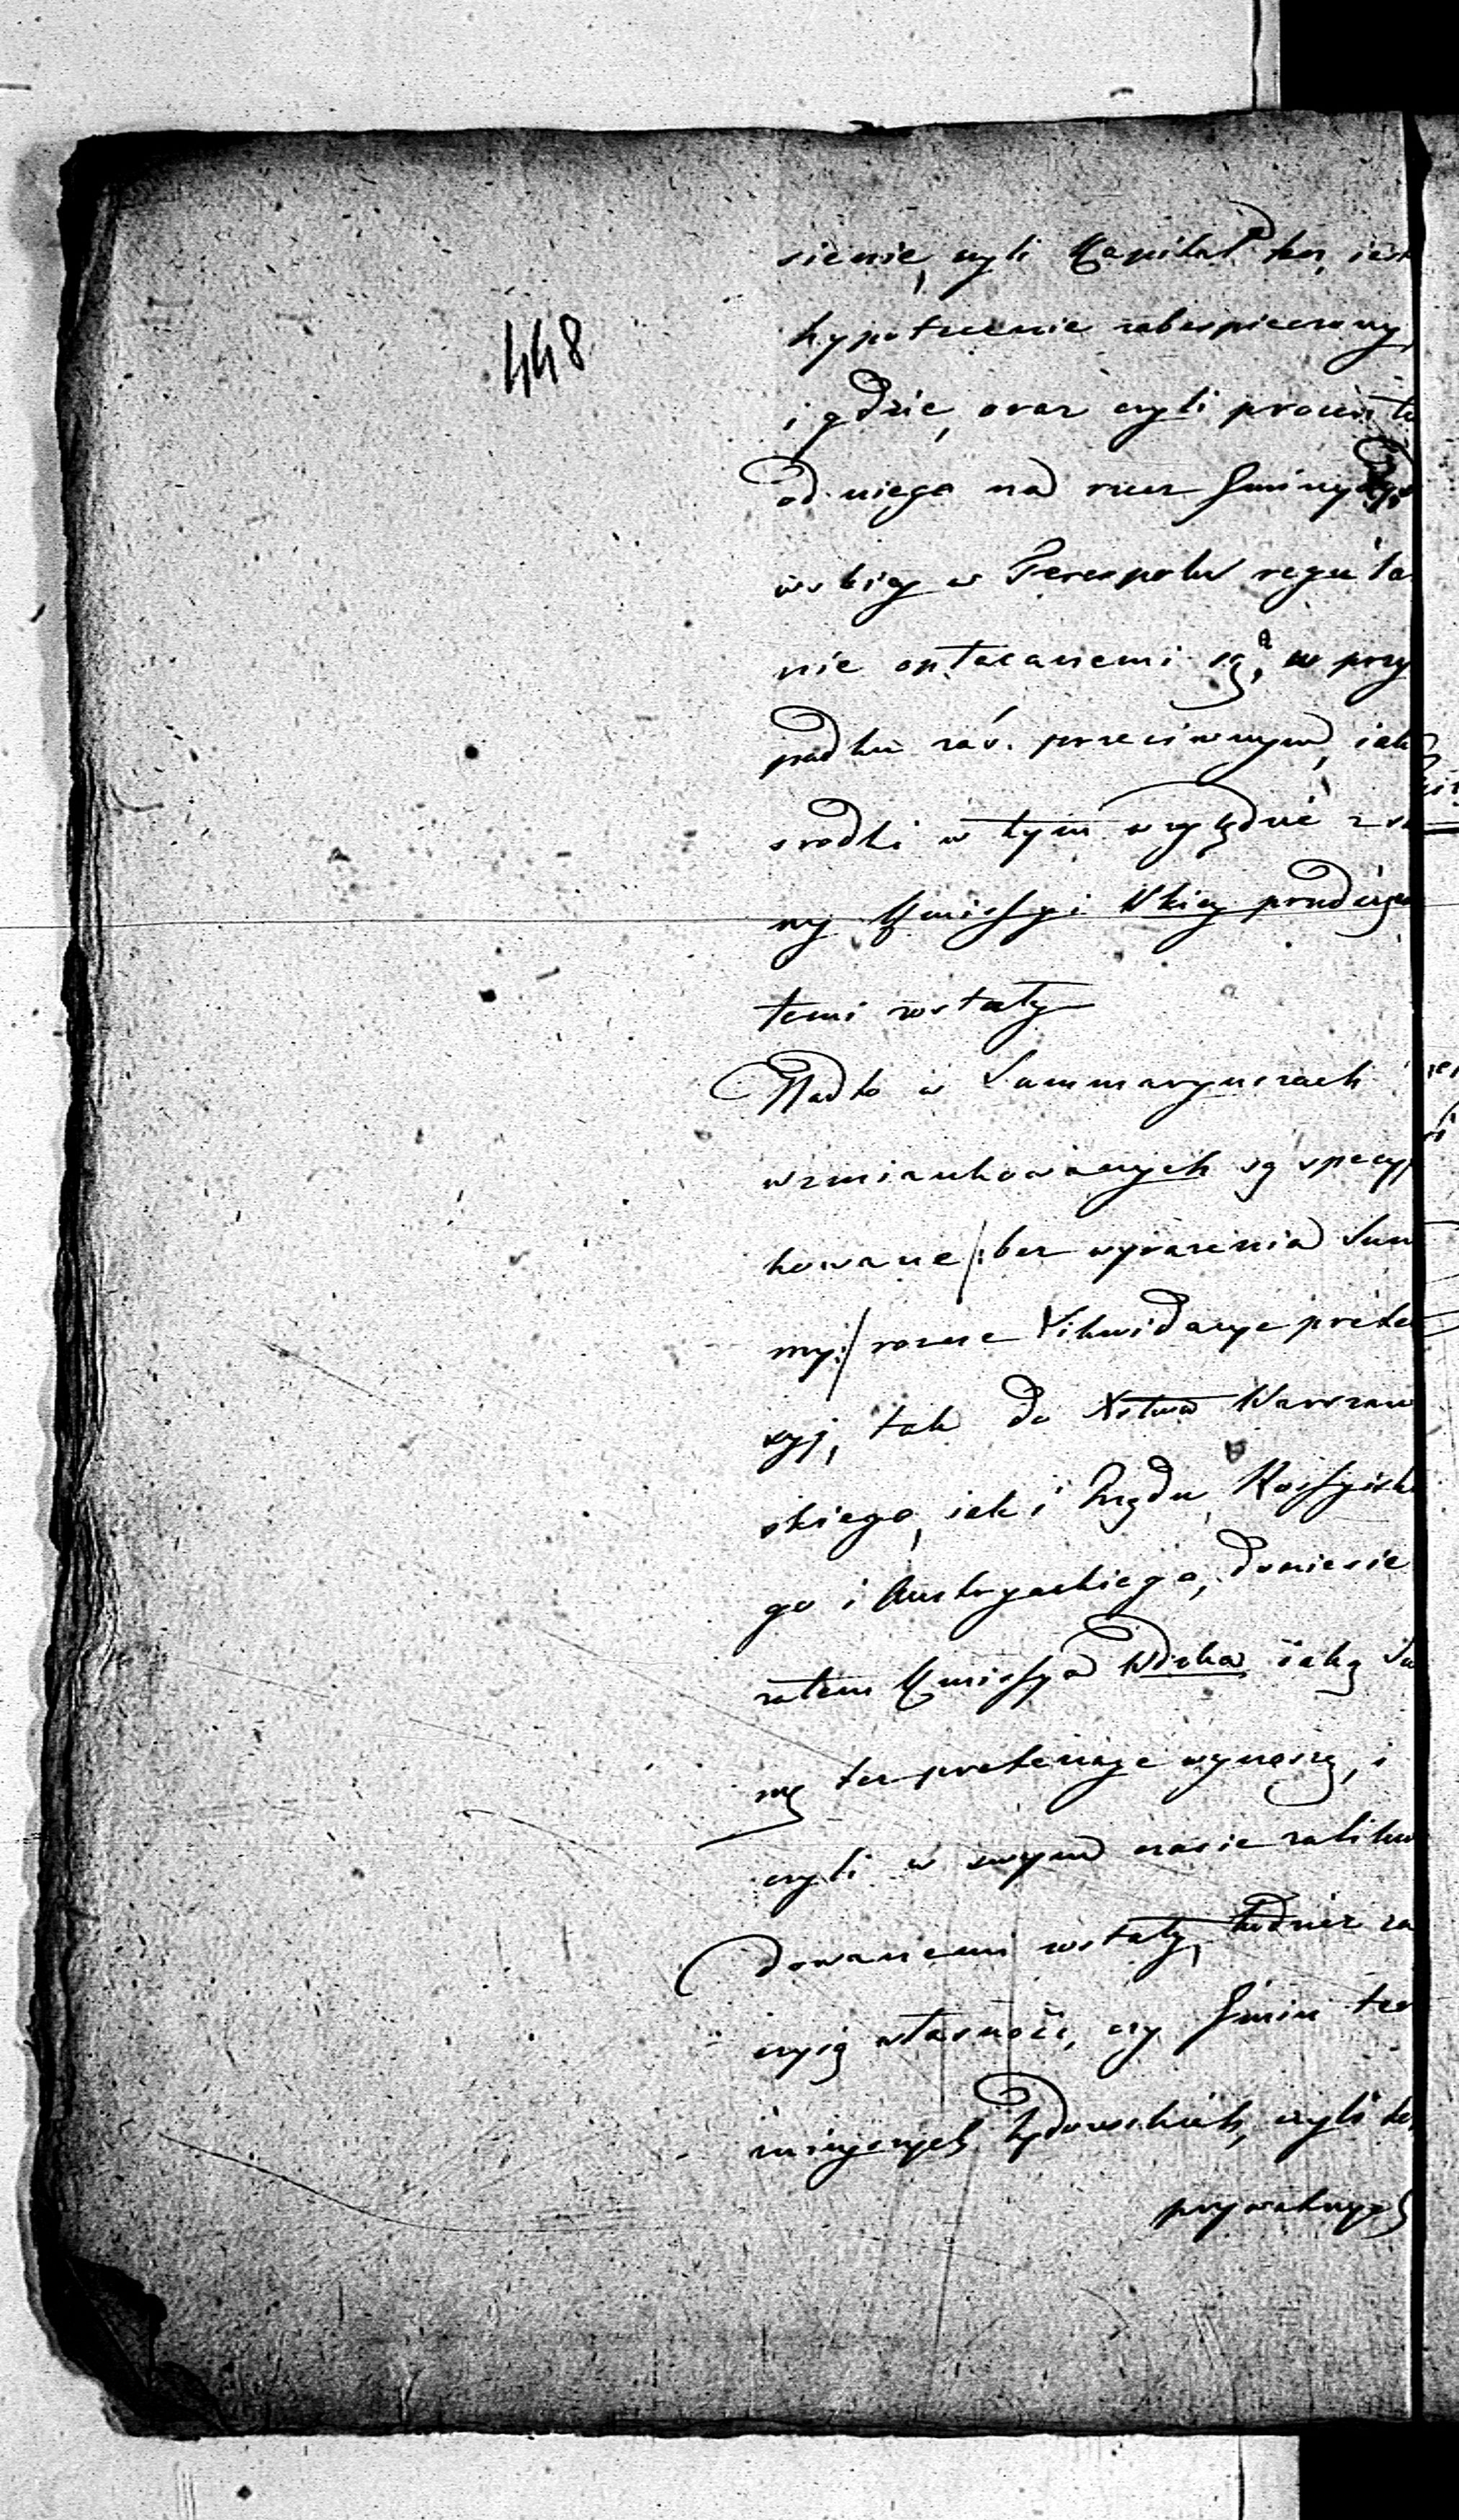 448
sienie, czyli Kapitał ten, iest
hypotecznie zabespieczony,
i gdzie, oraz czyli procenta
od niego na rzecz Gminy
wskiey w Terespolu regular
nie opłacanemi są, a w przy
padku zaś przeciwnym, iak
srodki w tym względzie z
ny Kmissyi Wkiey
temi zostały
Nadto w Summaryuszach
wzmiankowanych są specyf
kowane /: bez wyrażenia Sum
my :/ rozne Likwidacye preten
syj, tak do Xstwa Warszaw
skiego, iak i Rządu Rossyisk
go i Austryackiego, doniesie
zatem Kmissya Wdzka iaką Su
mę te pretensye wynoszą, i
czyli w swym czasie zalikw
dowanemi zostały, tudzież za
czyią własność, czy Gmin
innych Żydowskich, czyli też
prywatnych